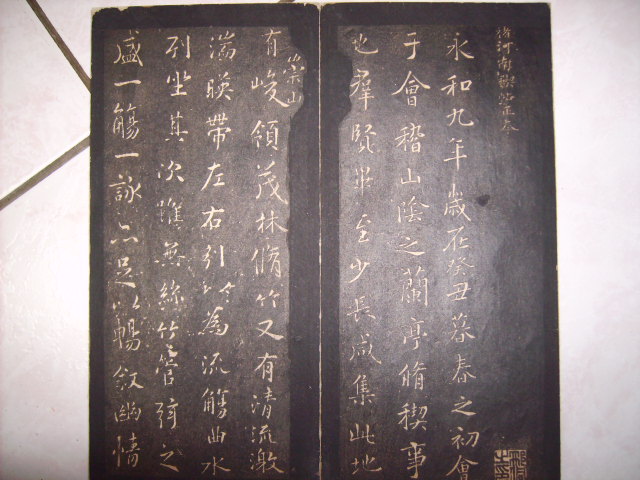 褚河南禊帖正本
永和九年歲在癸丑暮春之初會
于會稽山陰之蘭亭脩稧事
也羣賢畢至少長咸集此地
有崇山峻領茂林脩竹又有清流激
湍暎帶左右引以為流觴曲水
列坐其次雖無絲竹管弦之
盛一觴一詠亦足以暢敘幽情